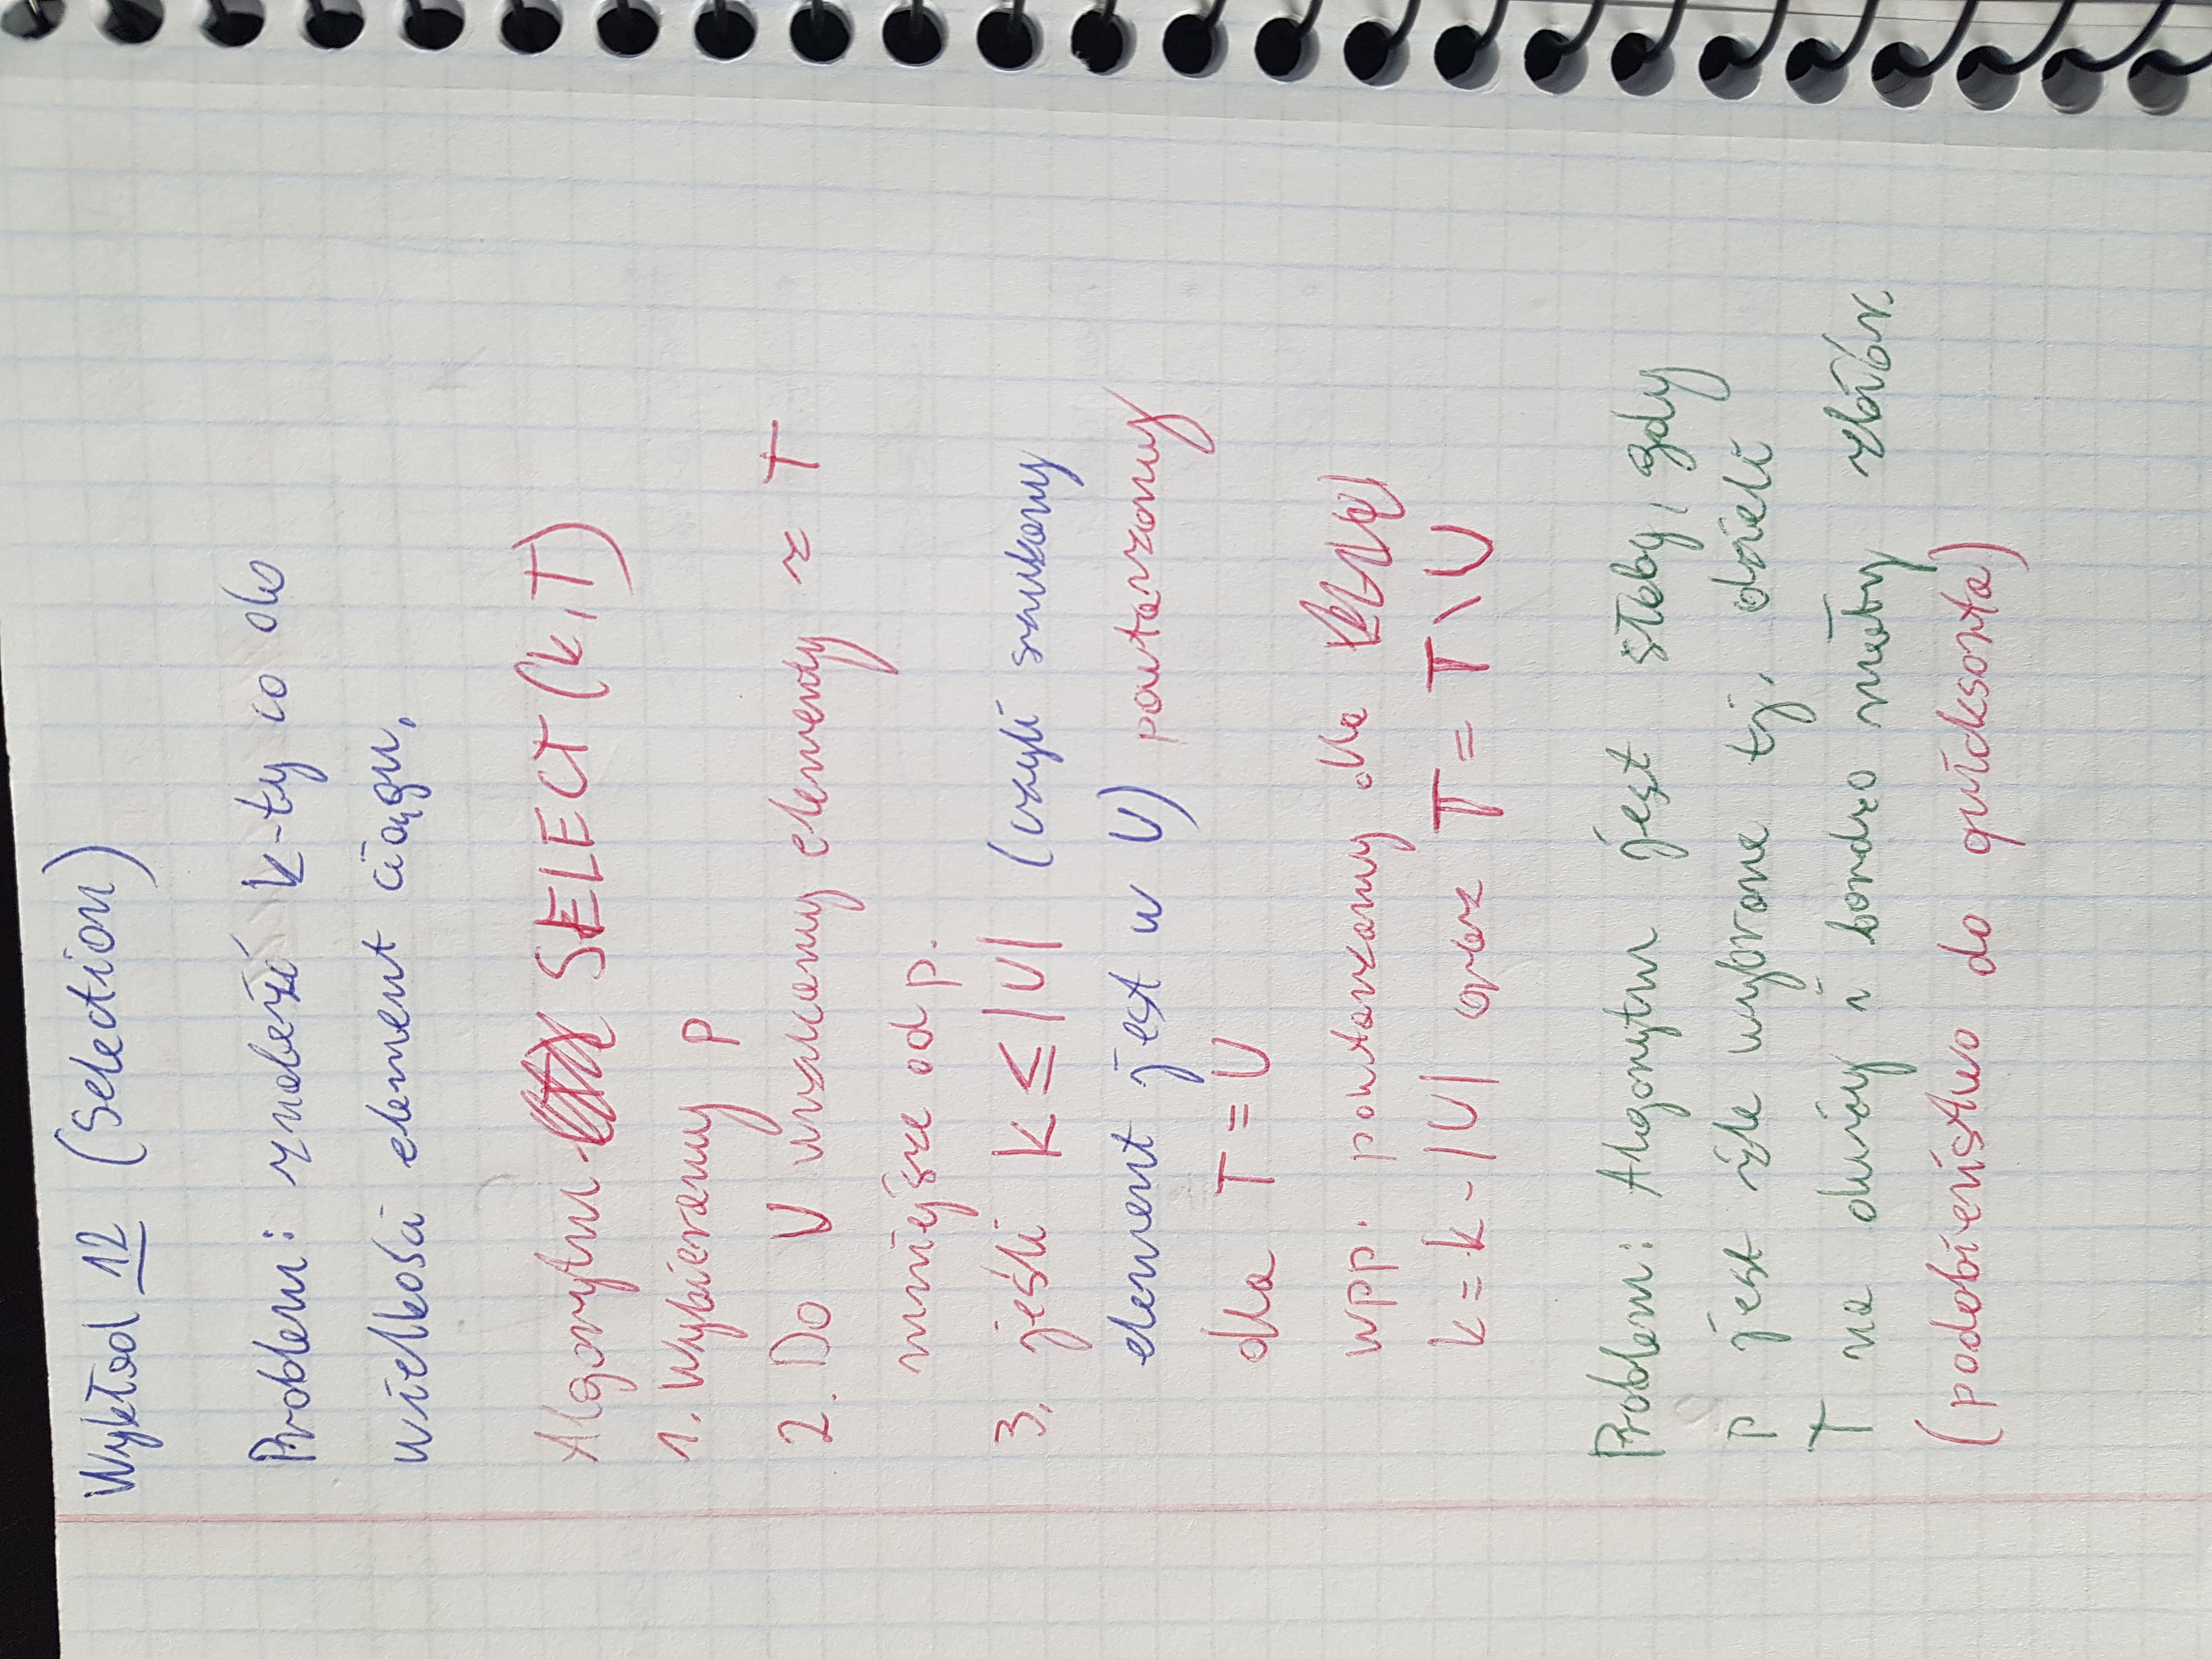 Wykład 12 (Selection)
Problem: znaleźć k-ty co do
wielkości element ciągu.
Algorytm SELECT (k, T)
1. Wybieramy p
2. Do U wrzucamy elementy z T
mniejsze od p.
3. jeśli k ≤ |U| (czyli szukany
element jest w U) powtarzamy
dla T = U
wpp. powtarzamy dla
k = k - |U| oraz T = T \ U
Problem: Algorytm jest słaby, gdy
p jest źle wybrane tj. dzieli
T na duży i bardzo mały zbiór.
(podobieństwo do quicksorta)